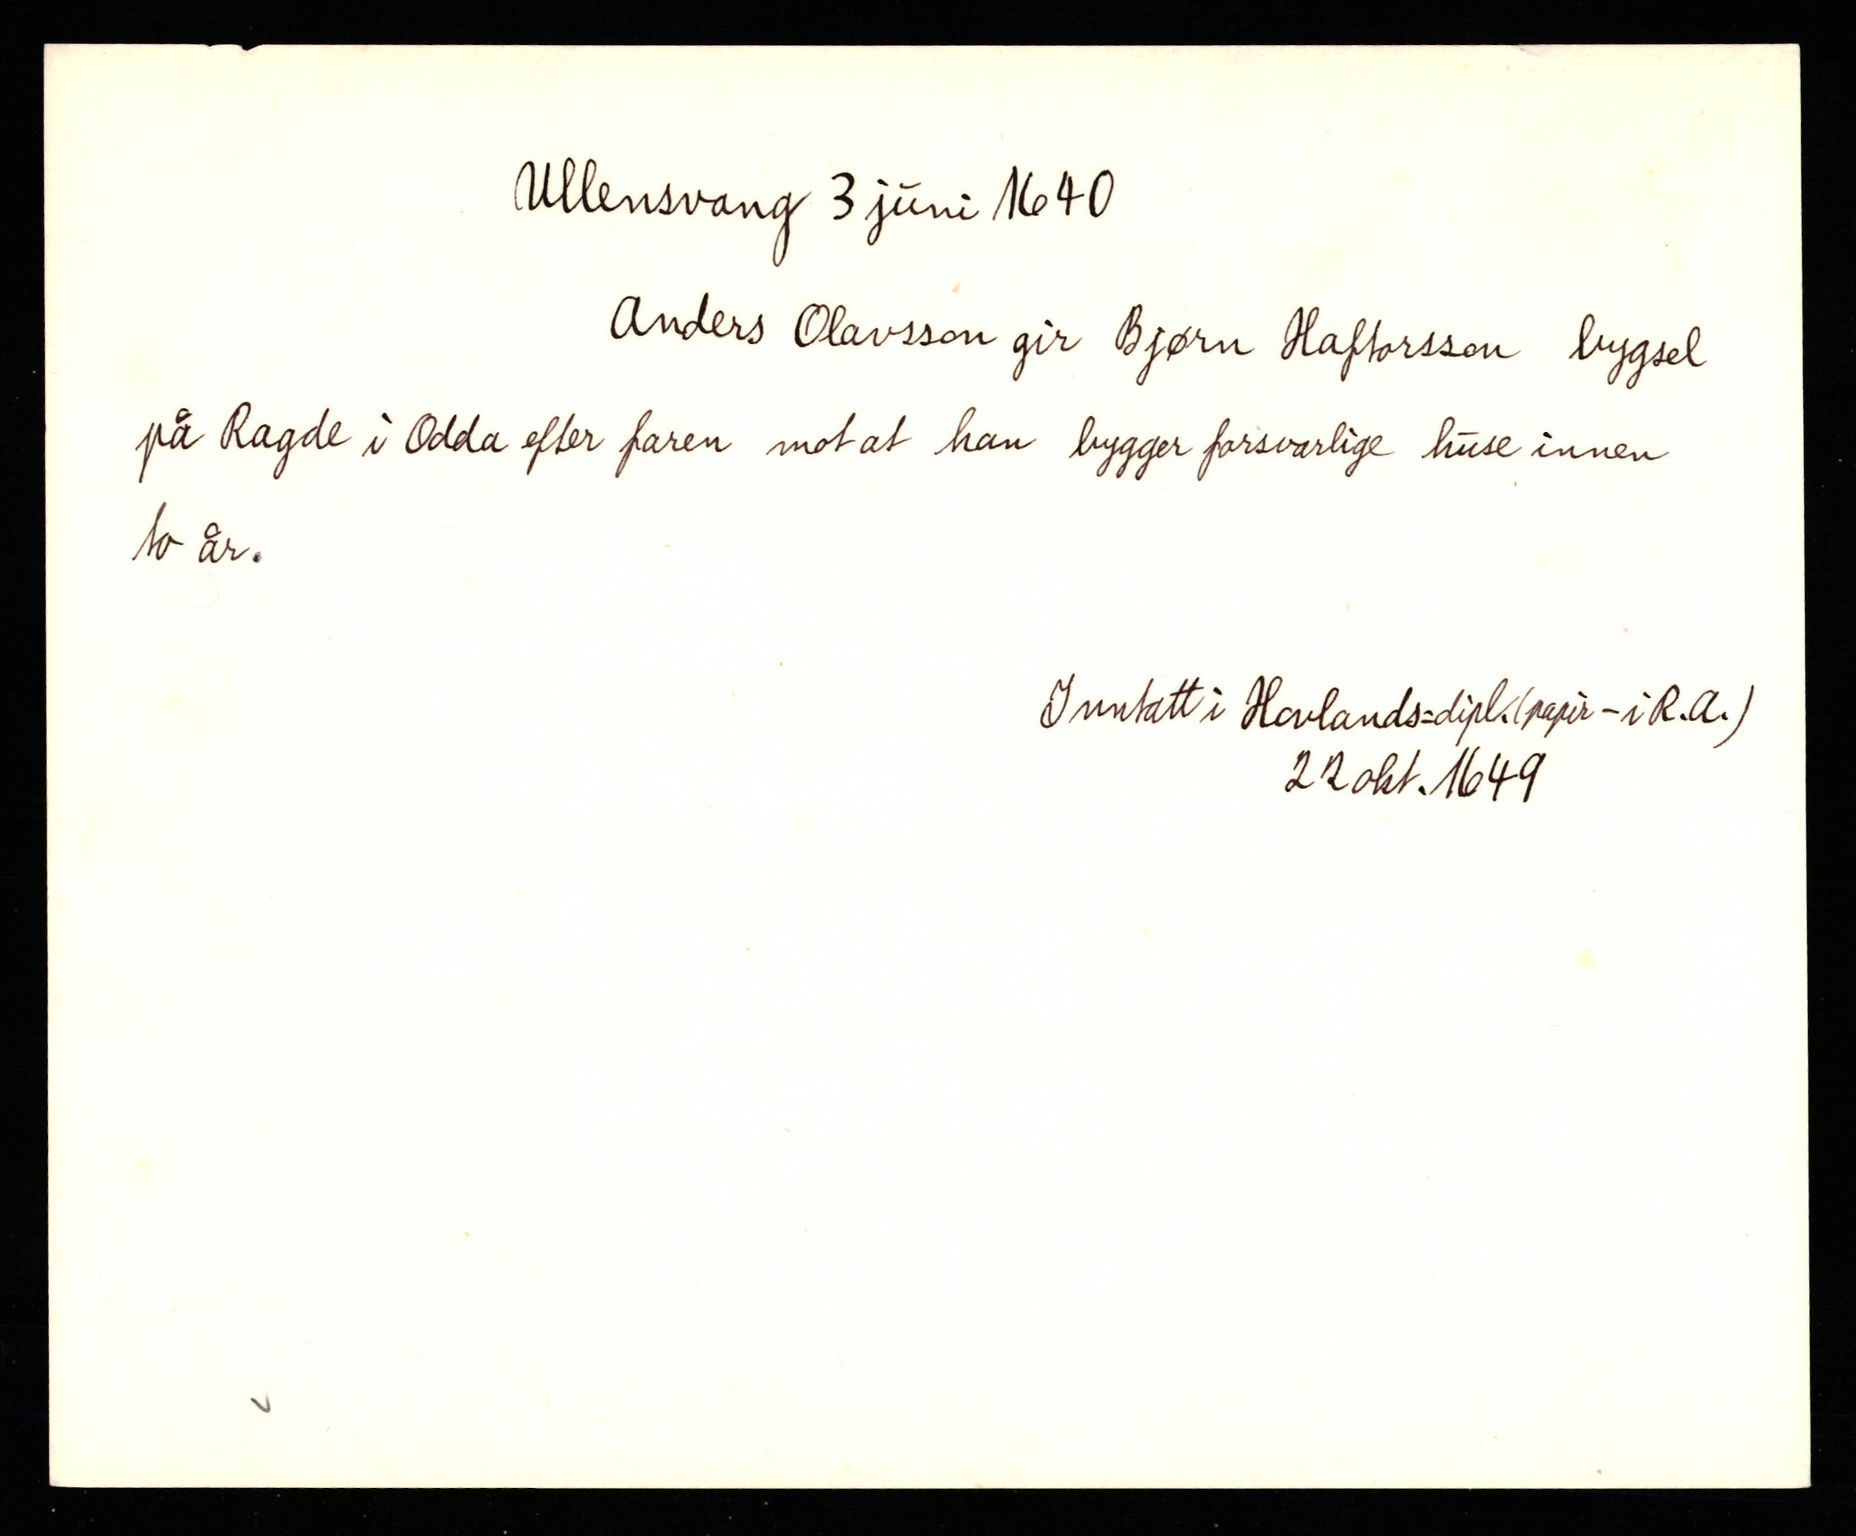 Ullensvang 3 juni 1640
Anders Olavsson gir Bjørn Haftorsson bygsel
på Ragde i Odda efter faren mot at han bygger forsvarlige huse innen
to år.
Inntatt i Hovlands=dipl. (papir - i R.A.)
22 okt. 1649